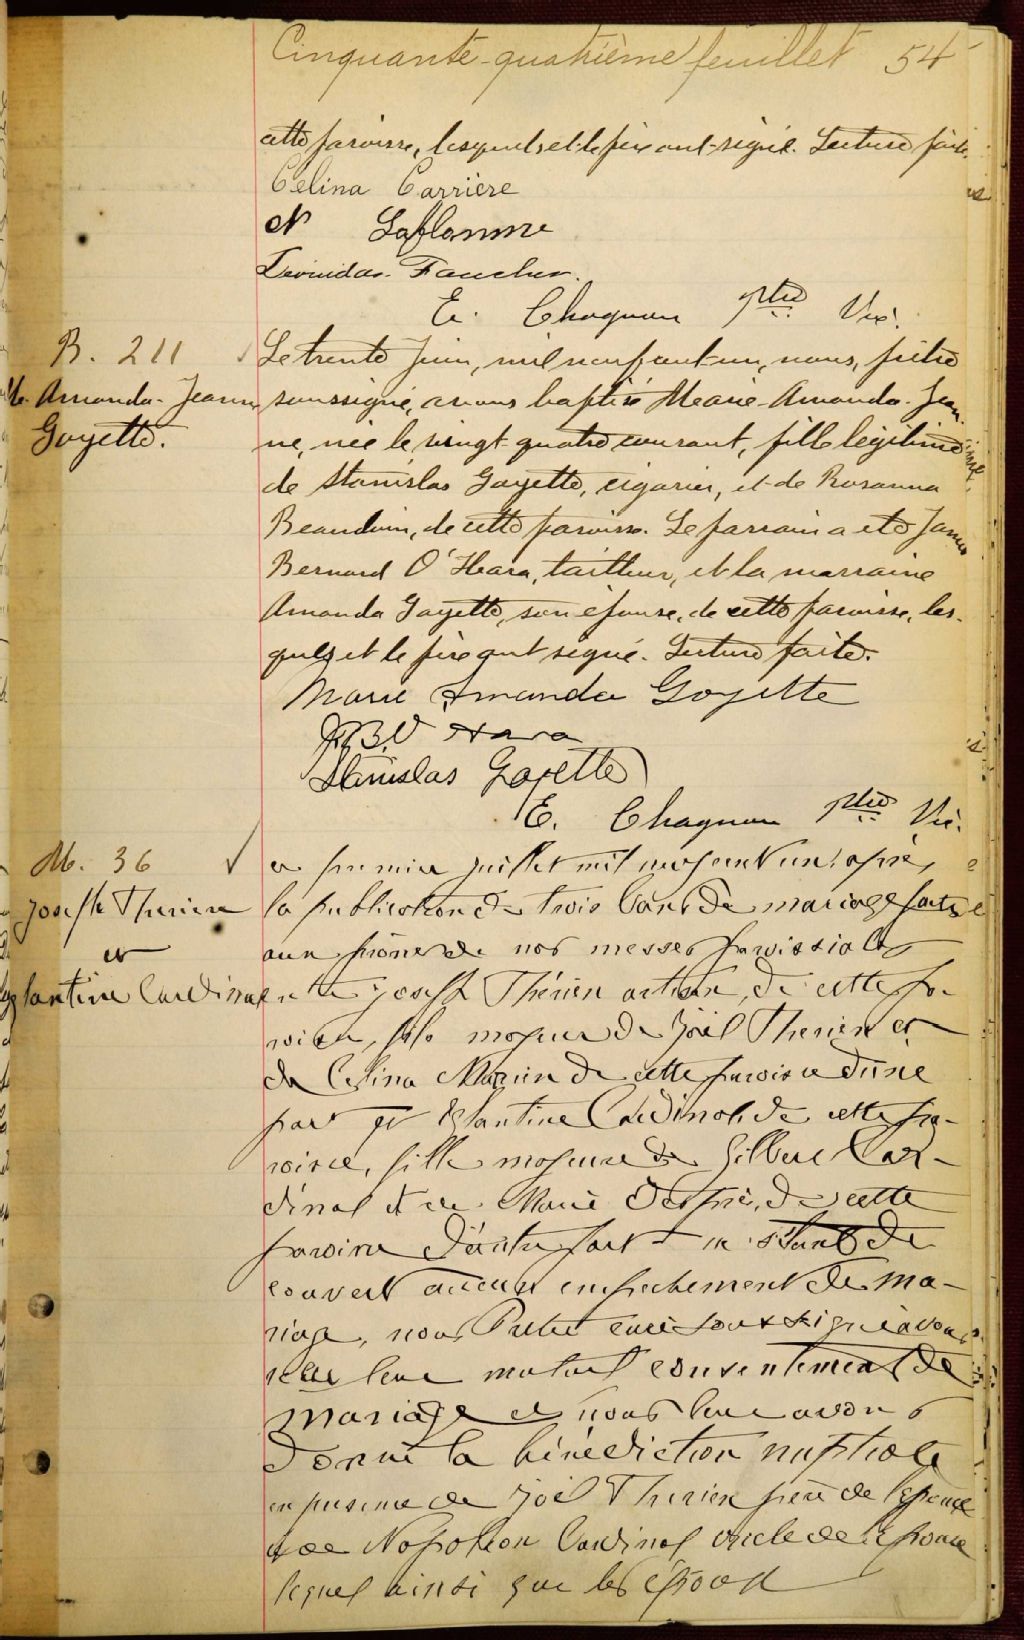 Cinquante-quatrième feuillet 54
cette paroisse, lesquels et le père ont signé. Lecture faite.
Celina Carrière
N Laflamme
Leonidas Faucher.
E. Chagnon Ptre Vic.
B. 211
M. Amanda-Jeanne
Goyette.
Le trente Juin, mil neuf cent un, nous, prêtre
soussigné, avons baptisé Marie-Amanda-Jean-
ne, née le vingt-quatre courant, fille légitime
de Stanislas Goyette, cigarier, et de Rosanna
Beaudoin, de cette paroisse. Le parrain a été James
Bernard O'Hara, tailleur, et la marraine
Amanda Goyette, son épouse, de cette paroisse, les-
quels et le père ont signé. Lecture faite.
Marie Amanda Goyette
J.B.O'Hara
Stanislas Goyette
E. Chagnon Ptre Vic.
M. 36
Joseph Therien
et
Eglantine Cardinal
Le premier juillet mil neuf cent un, après
la publication de trois bans de mariage faite
aux prônes de nos messes paroissiales
entre Joseph Thérien artisan, de cette pa-
roisse, fils majeur de Joël Therien et
de Celina Marien de cette paroisse d'une
part et Eglantine Cardinal de cette pa-
roisse, fille majeure de Gilbert Car-
dinal et de Marie de cette
paroisse d'autre part ne s'étant dé-
couvert aucun empêchement de ma-
riage, nous Prêtre curé soussigné avons
reçu leur mutuel consentement de
mariage et nous leur avons
donné la bénédiction nuptiale
en présence de Joël Therien père de l'époux
et de Napoléon Cardinal oncle de l'épouse
lequel ainsi que les époux